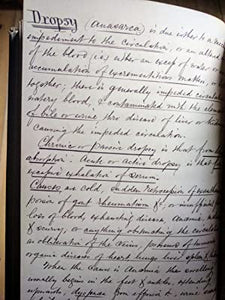 Dropsy (Anasarca) is due either to a
impediment to the circulation, or an altered
of the blood (i.e) either an excess of water or
accumulation of excrementitious matters,
together; there is generally impeded circulation
watery blood, & contaminated with the elements
of bile or urine thro disease of liver or kidneys
causing the impeded circulation.
Chronic or passive dropsy is that from
absorption. Acute or active dropsy is that
exhalation of serum.
Causes are cold, sudden retrocession of
of gout rheumatism &c, or
loss of blood, exhausting disease, Anaemia,
& scurvy, or anything obstructing the circulation
as obliteration of the veins, pressure of tumours
organic disease of heart lungs liver
When the cause is Anaemia the swelling
usually begin in the feet & ankles extending
upwards; dyspnoea from effusion &